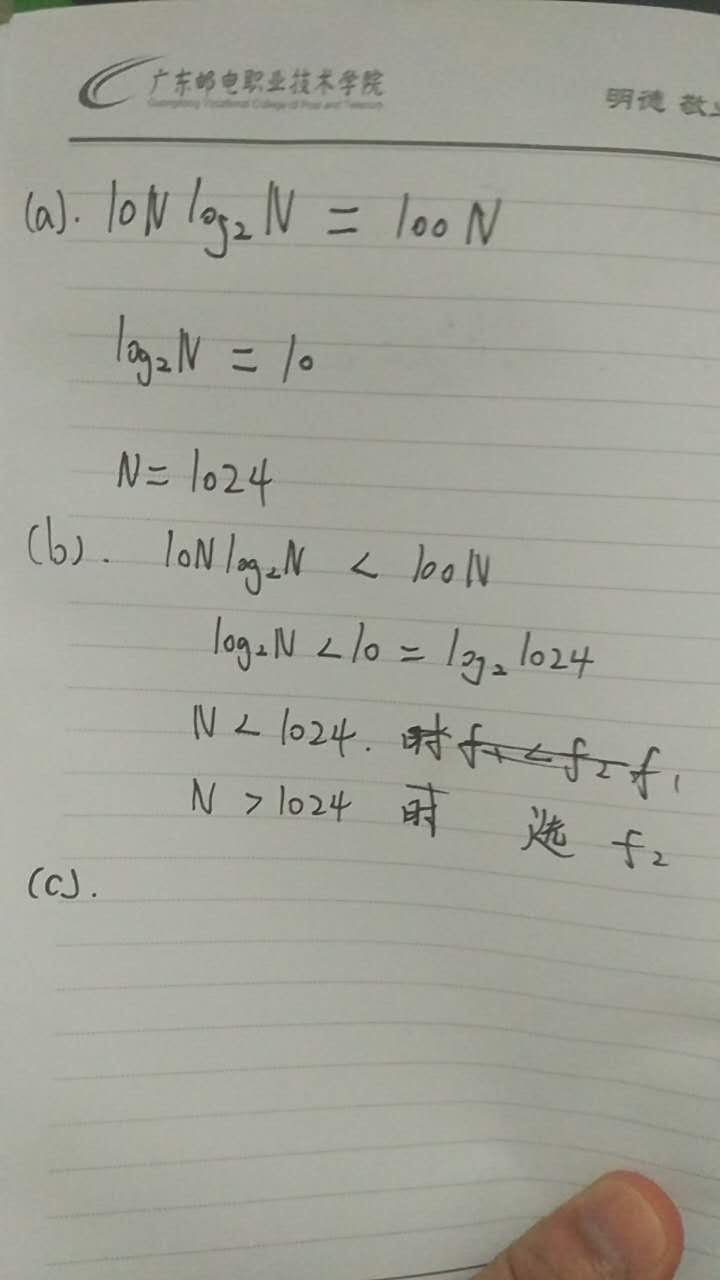 广东邮电职业技术学院
Guangdong Vocational College of Post and Telecom
明德 敬业
(a). 10N log₂N = 100N
log₂N = 10
N = 1024
(b). 10N log₂N < 100N
log₂N < 10 = log₂1024
N < 1024. 时 f₁ < f₂ f₁
N > 1024 时 选 f₂
(c).